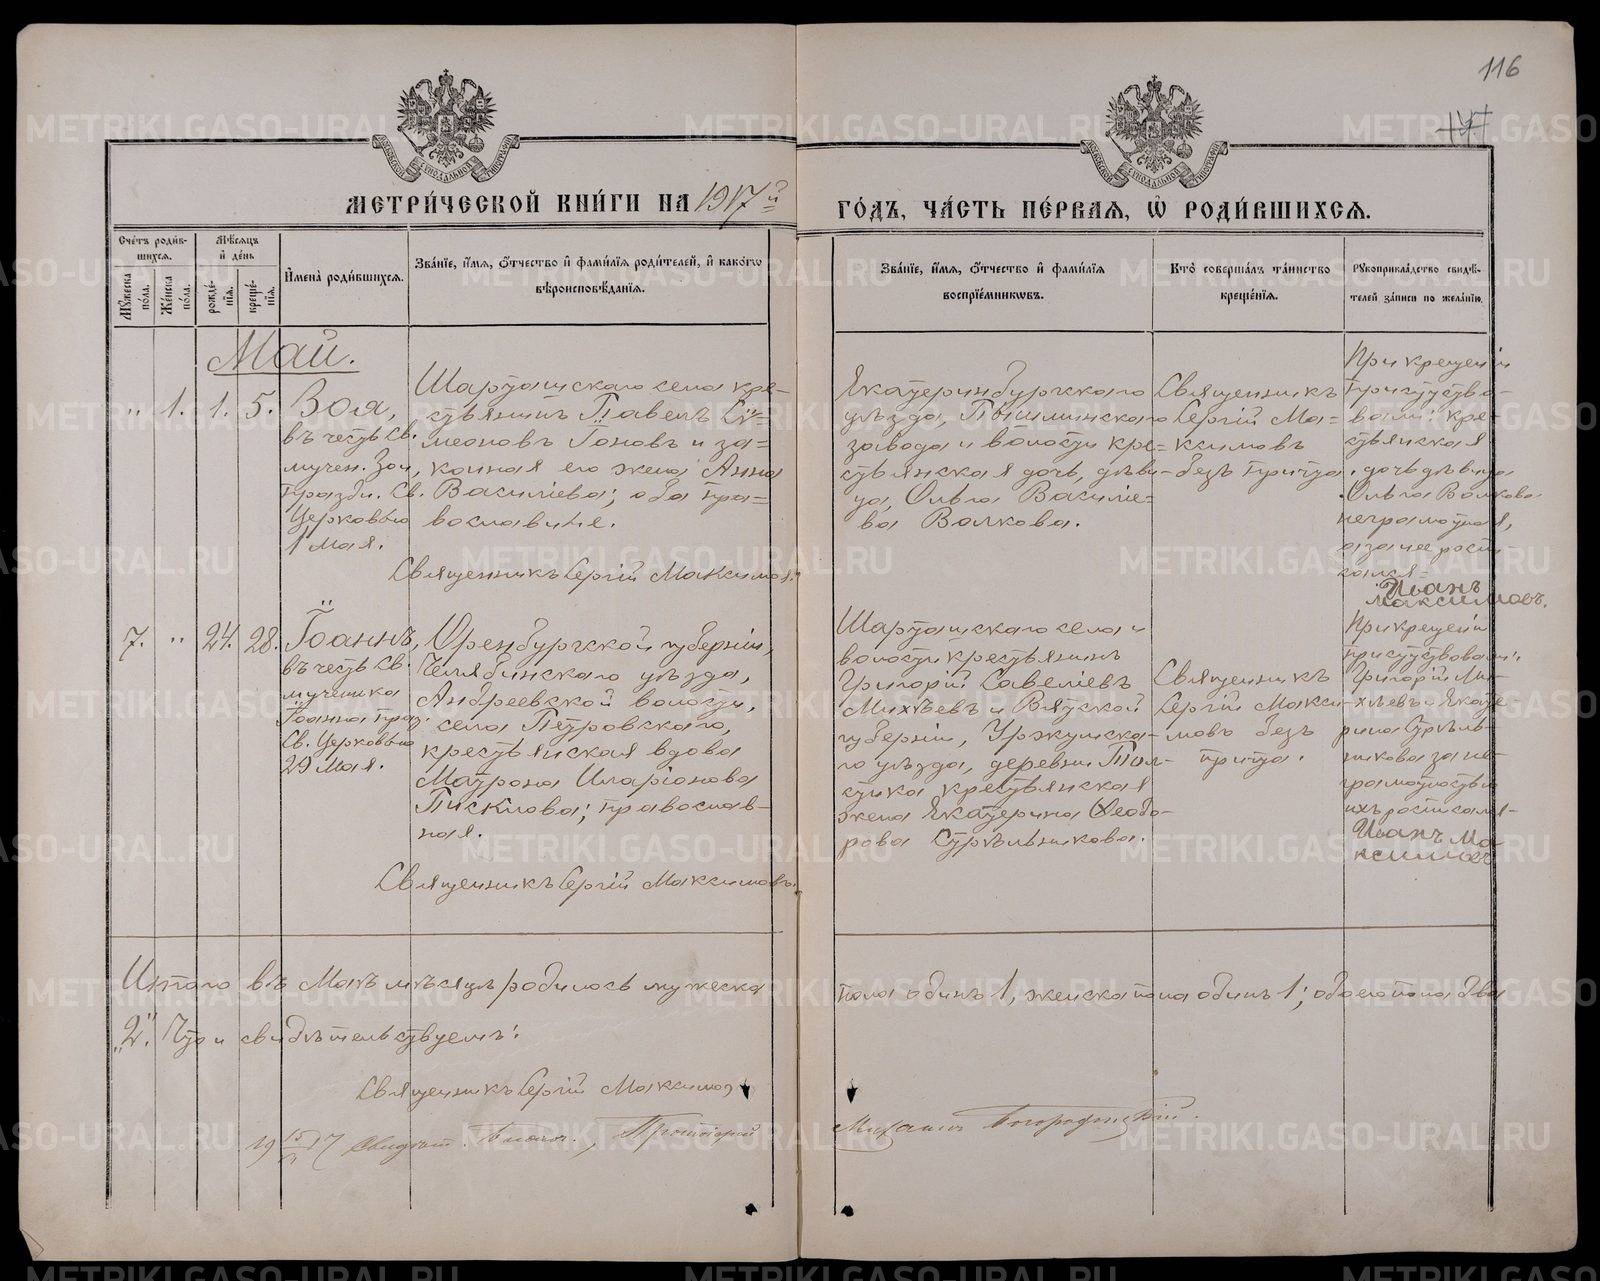 116
МЕТРИ́ЧЕСКОЙ КНИ́ГИ НА 1917й
ГО́ДЪ, ЧА́СТЬ ПЕ́РВАЯ, Ѡ҆ РОДИ́ВШИХСЯ.
Сче́тъ роди́в-
шихся.
Мужеска
по́ла.
Же́нска
по́ла.
Мѣ́сяцъ
и҆ де́нь
рожде́-
нїя.
креще́-
нїя.
И҆мена̀ роди́вшихся.
Зва́нїе, и҆́мя, ѻ҆́тчество и҆ фами́лїя роди́телей, и҆ како́гѡ
вѣроисповѣ́данїя.
Зва́нїе, и҆́мя, ѻ҆́тчество и҆ фами́лїя
воспрїе́мникѡвъ.
Кто̀ соверша́лъ та́инство
креще́нїя.
Рукоприкла́дство свидѣ́-
телей за́писи по жела́нїю.
Май.
" 1. 1. 5.
Зоя,
въ честь св.
мучен. Зои,
празд. Св.
Церковью
1 мая.
Шарташскаго села кре-
стьянинъ Павелъ Си-
меоновъ Гоновъ и за-
конная его жена Анна
Васильева; оба пра-
вославные.
Священникъ Сергій Максимовъ.
Екатеринбургскаго
уѣзда, Пышминскаго
завода и волости кре-
стьянская дочь, дѣви-
ца, Ольга Василье-
ва Волкова.
Священникъ
Сергій Ма-
ксимовъ
безъ причта
При крещеніи
присутство-
вали: кре-
стьянская
дочь дѣвица
Ольга Волкова
неграмотная,
а за нее роспи-
сался-
Иванъ
Максимовъ.
7. " 24. 28.
Іоаннъ,
въ честь св.
мученика
Іоанна праз.
Св. Церковью
29 мая.
Оренбургской губерніи,
Челябинскаго уѣзда,
Андреевской волости,
села Петровскаго,
крестьянская вдова
Матрона Иларіонова
Пискнова; православ-
ная.
Священникъ Сергій Максимовъ.
Шарташскаго села и
волости крестьянинъ
Григорій Савельевъ
Михѣевъ и Вятской
губерніи, Уржумска-
го уѣзда, деревни Тол-
стика крестьянская
жена Екатерина Ѳеодо-
рова Стрѣльникова.
Священникъ
Сергій Макси-
мовъ безъ
причта.
При крещеніи
присутствовали:
Григорій Ми-
хѣевъ и Екате-
рина Стрѣль-
никова за не-
грамотностью
ихъ росписался-
Иванъ Ма-
ксимовъ
Итого въ Маѣ мѣсяцѣ родилось мужеска
пола одинъ 1, женска пола одинъ 1; обоего пола два
"2". Что и свидѣтельствуемъ:
Священникъ Сергій Максимовъ
Протоіерей
Михаилъ